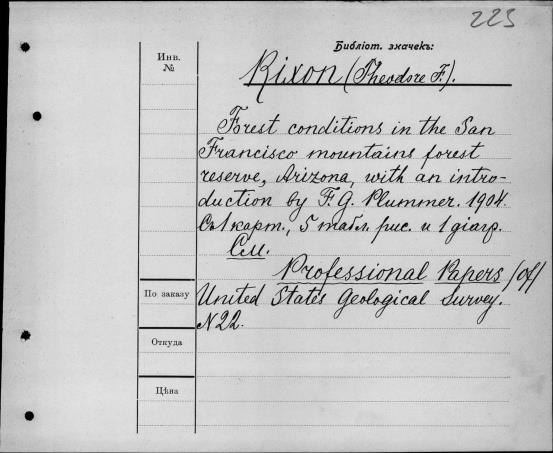 223
Библіот. значекъ:
Инв.
№
Rixon (Theodore F.).
Forest conditions in the San
Francisco mountains forest
reserve, Arizona, with an intro-
duction by F. G. Plummer. 1904.
Съ 1 карт., 5 табл. рис. и 1 діагр.
См.
Professional Papers (of)
По заказу
United States Geological Survey.
N 22.
Откуда
Цѣна